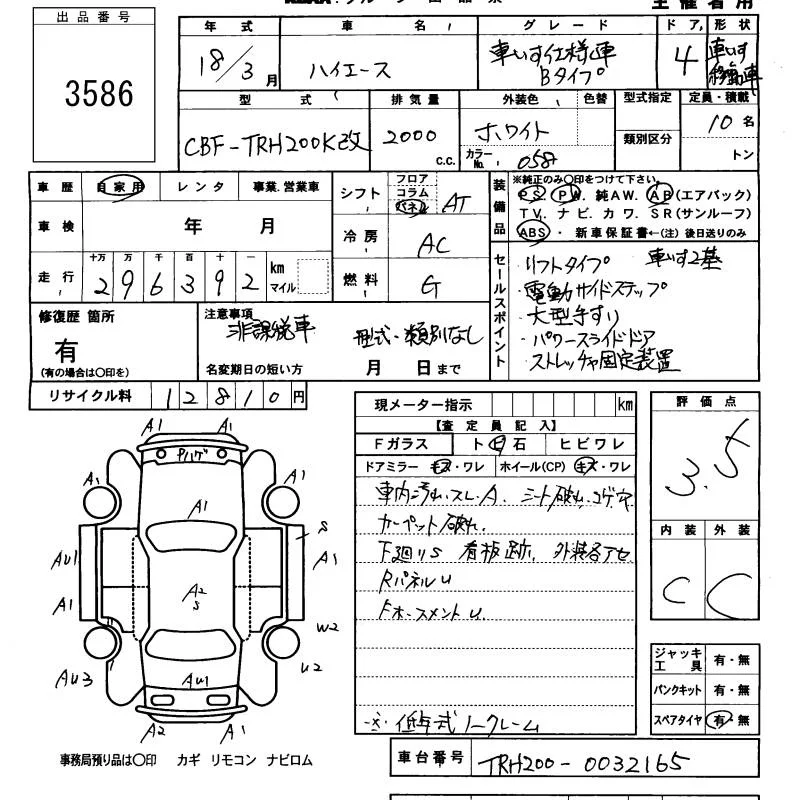 主催者用
出品番号
3586
年式 車名 グレード ドア 形状
18/3月 ハイエース 車いす仕様車 Bタイプ 4 車いす移動車
型式 排気量 外装色 色替 型式指定 定員・積載
CBF-TRH200K改 2000 c.c. ホワイト 類別区分 10名
カラーNo. 058 トン
車歴 自家用 レンタ 事業.営業車
車検 年 月
走行 十万 万 千 百 十 一
296392 km マイル
シフト フロア コラム パネル AT
冷房 AC
燃料 G
装備品 ※純正のみ〇印をつけて下さい。
PS. PW. 純AW. AB(エアバック)
TV. ナビ. カワ. SR(サンルーフ)
ABS・ 新車保証書←(注) 後日送りのみ
セールスポイント
・リフトタイプ 車いす2基
・電動サイドステップ
・大型手すり
・パワースライドドア
・ストレッチャ固定装置
修復歴 箇所
有
(有の場合は〇印を)
注意事項
非課税車 型式・類別なし
名変期日の短い方 月 日まで
リサイクル料 12810円
現メーター指示 km
【査定員記入】
Fガラス ト・ヒ石 ヒビワレ
ドアミラー キズ・ワレ ホイール(CP) キズ・ワレ
車内汚れ.スレ.A. シート破れ.コゲ穴
カーペット破れ.
F廻りS 看板跡. 外装各アセ
RパネルU
FホースメントU.
※低年式ノークレーム
評価点
3.5
内装 外装
C C
ジャッキ工具 有・無
パンクキット 有・無
スペアタイヤ 有・無
車台番号 TRH200-0032165
A1 A1
Pハゲ
A1 A1
A1
S
AU1 A1
A1 A2
S
W2
AU3 U2
AU1
A2 A1
事務局預り品は〇印 カギ リモコン ナビロム